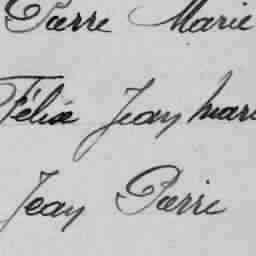 Pierre Marie
Félix Jean Mari
Jean Pierre